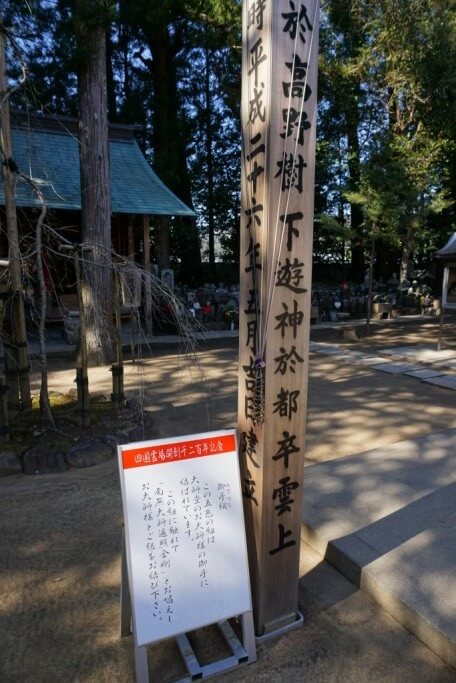 於高野樹下遊神於都卒雲上
時平成二十六年五月吉日建立
四国霊場開創千二百年記念
御手綱
この五色の紐は
大師堂のお大師様の御手に
結ばれています。
この紐に触れて
「南無大師遍照金剛」とお唱えし
お大師様とご縁をお結び下さい。